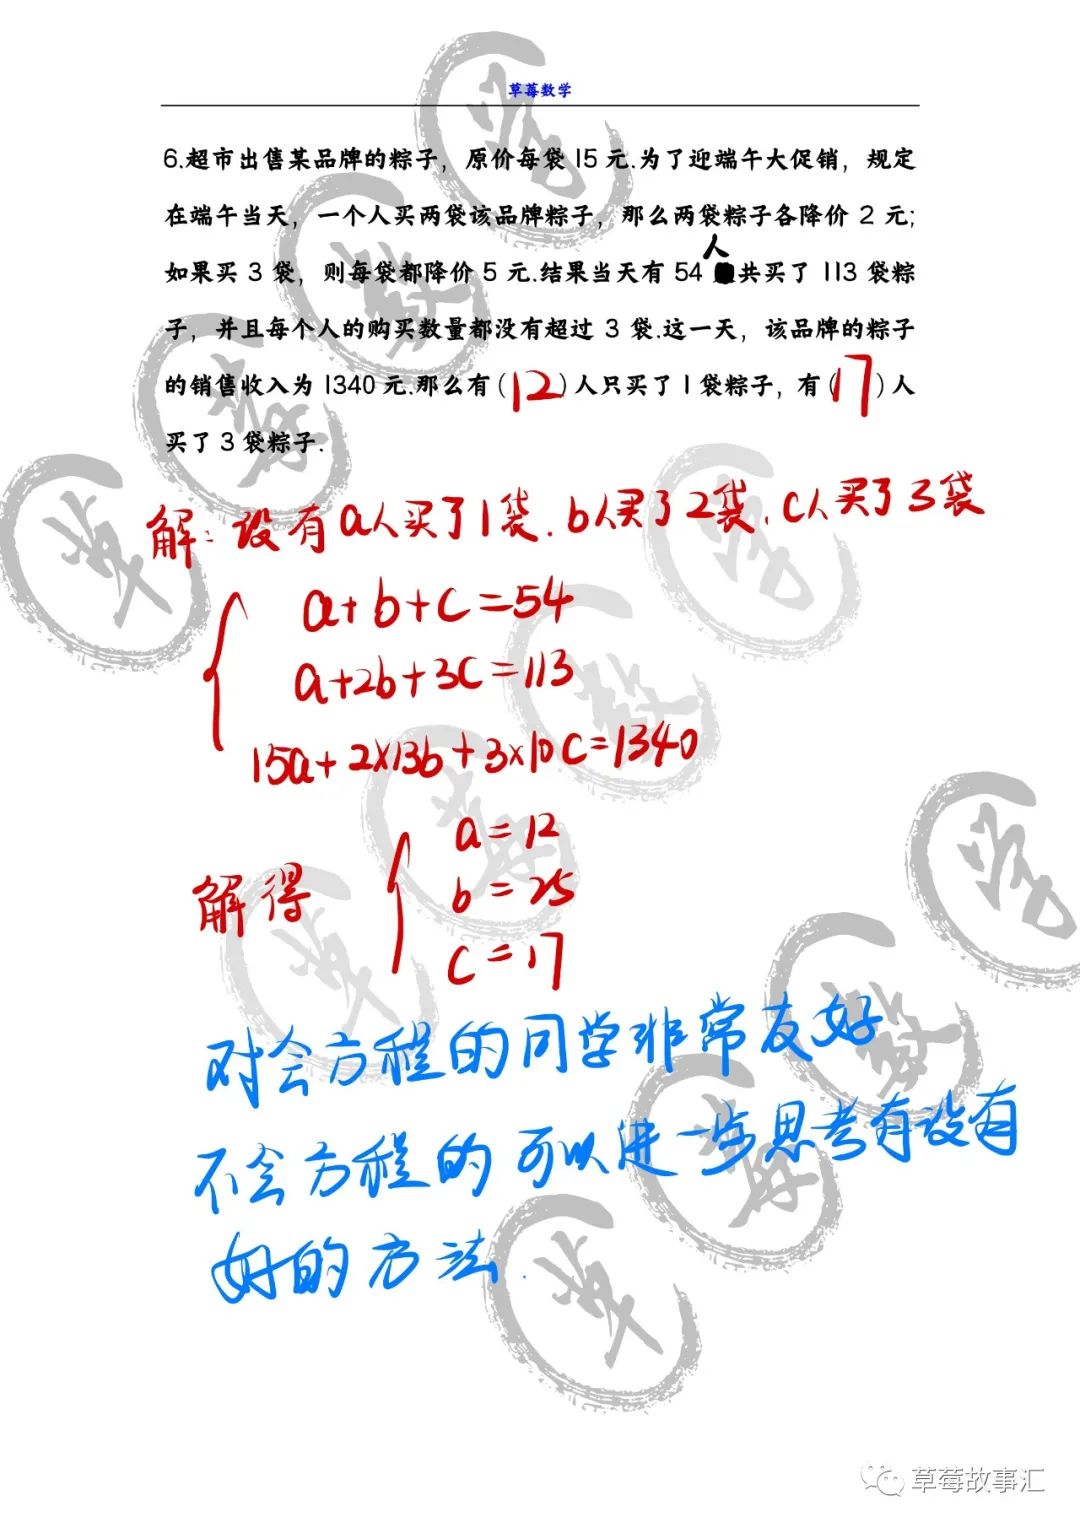 草莓数学
6.超市出售某品牌的粽子，原价每袋 15 元.为了迎端午大促销，规定
在端午当天，一个人买两袋该品牌粽子，那么两袋粽子各降价 2 元;
如果买 3 袋，则每袋都降价 5 元.结果当天有 54 人共买了 113 袋粽
子，并且每个人的购买数量都没有超过 3 袋.这一天，该品牌的粽子
的销售收入为 1340 元.那么有(12)人只买了 1 袋粽子，有(17)人
买了 3 袋粽子.
解：设有a人买了1袋.b人买了2袋.c人买了3袋
a+b+c=54
a+2b+3c=113
15a+2×13b+3×10c=1340
解得
a=12
b=25
c=17
对会方程的同学非常友好
不会方程的可以进一步思考有没有
好的方法.
草莓故事汇